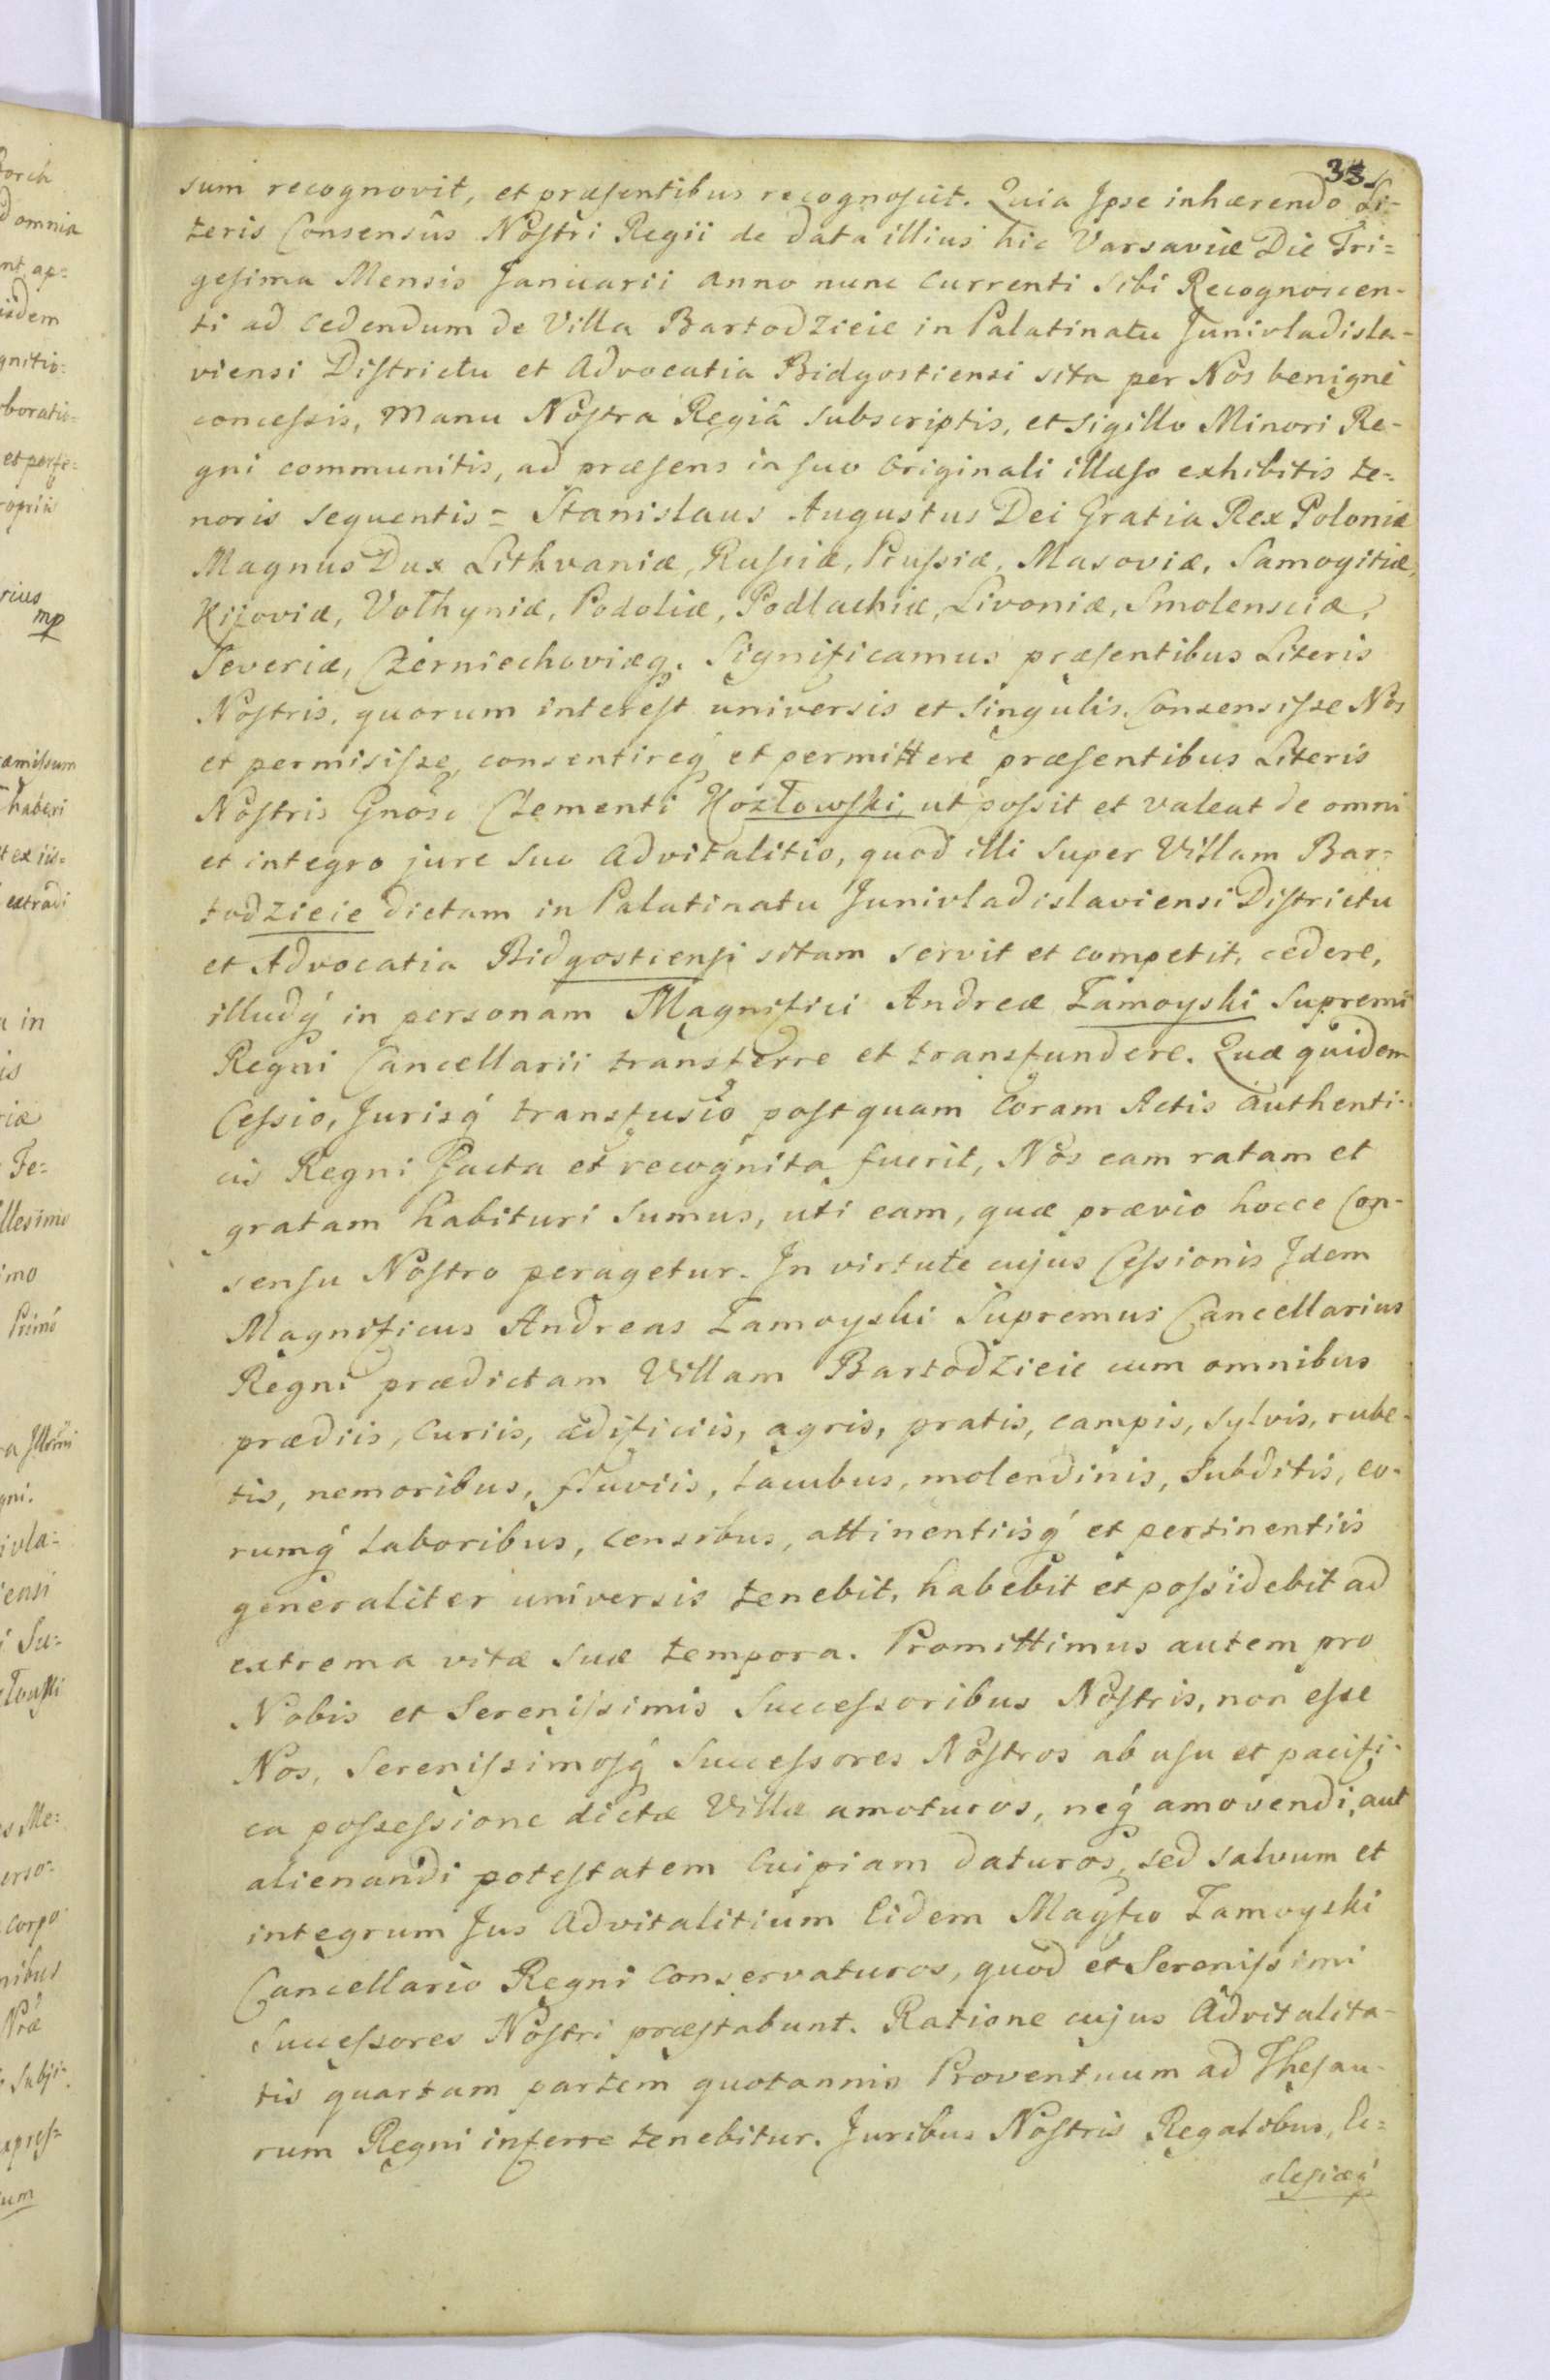 33.
sum recognovit, et præsentibus recognoscit. Quia Ipse inhærendo Li-
teris Consensûs Nostri Regii de data illius hic Varsaviæ Die Tri=
gesima Mensis Januarii anno nunc Currenti sibi Recognoscen-
ti ad cedendum de Villa Bartodzieie in Palatinatu Junivladisla-
viensi Districtu et Advocatia Bidgostiensi sita per Nos benignè
concessis, Manu Nostra Regiâ subscriptis, et sigillo Minori Re-
gni communitis, ad præsens in suo Originali illæso exhibitis te-
noris sequentis = Stanislaus Augustus Dei Gratia Rex Poloniæ
Magnus Dux Lithvaniæ, Russiæ, Prussiæ, Masoviæ, Samogitiæ,
Kijoviæ, Volhyniæ, Podoliæ, Podlachiæ, Livoniæ, Smolensciæ,
Severiæ, Czerniechoviæq. Significamus præsentibus Literis
Nostris, quorum interest universis et singulis. Consensisse Nos
et permisisse, consentireq́ et permittere præsentibus Literis
Nostris Gnoso Clementi Kozłowski, ut possit et valeat de omni
et integro jure suo Advitalitio, quod illi super Villam Bar=
todzieie dictam in Palatinatu Junivladislaviensi Districtu
et Advocatia Bidgostiensi sitam servit et competit, cedere,
illudq́ in personam Magnifici Andreæ Zamoyski Supremi
Regni Cancellarii transferre et transfundere. Quæ quidem
Cessio, Jurisq́ transfusio postquam Coram Actis Authenti-
cis Regni facta et recognita fuerit, Nos eam ratam et
gratam habituri sumus, uti eam, quæ prævio hocce Con-
sensu Nostro peragetur. In virtute cujus Cessionis Idem
Magnificus Andreas Zamoyski Supremus Cancellarius
Regni prædictam Villam Bartodzieie cum omnibus
prædiis, Curiis, ædificiis, agris, pratis, campis, sylvis, rube-
tis, nemoribus, fluviis, lacubus, molendinis, subditis, eo-
rumq́ laboribus, censibus, attinentiisq́ et pertinentiis
generaliter universis tenebit, habebit et possidebit ad
extrema vitæ suæ tempora. Promittimus autem pro
Nobis et Serenissimis Successoribus Nostris, non esse
Nos, Serenissimosq́ Successores Nostros ab usu et pacifi-
ca possessione dictæ Villæ amoturos, neq́ amovendi, aut
alienandi potestatem Cuipiam daturos, sed salvum et
integrum Jus Advitalitium Eidem Magfco Zamoyski
Cancellario Regni Conservaturos, quod et Serenissimi
Successores Nostri præstabunt. Ratione cujus Advitalita-
tis quartam partem quotannis Proventuum ad Thesau-
rum Regni inferre tenebitur. Juribus Nostris Regalibus, Ec=
clesiæq́